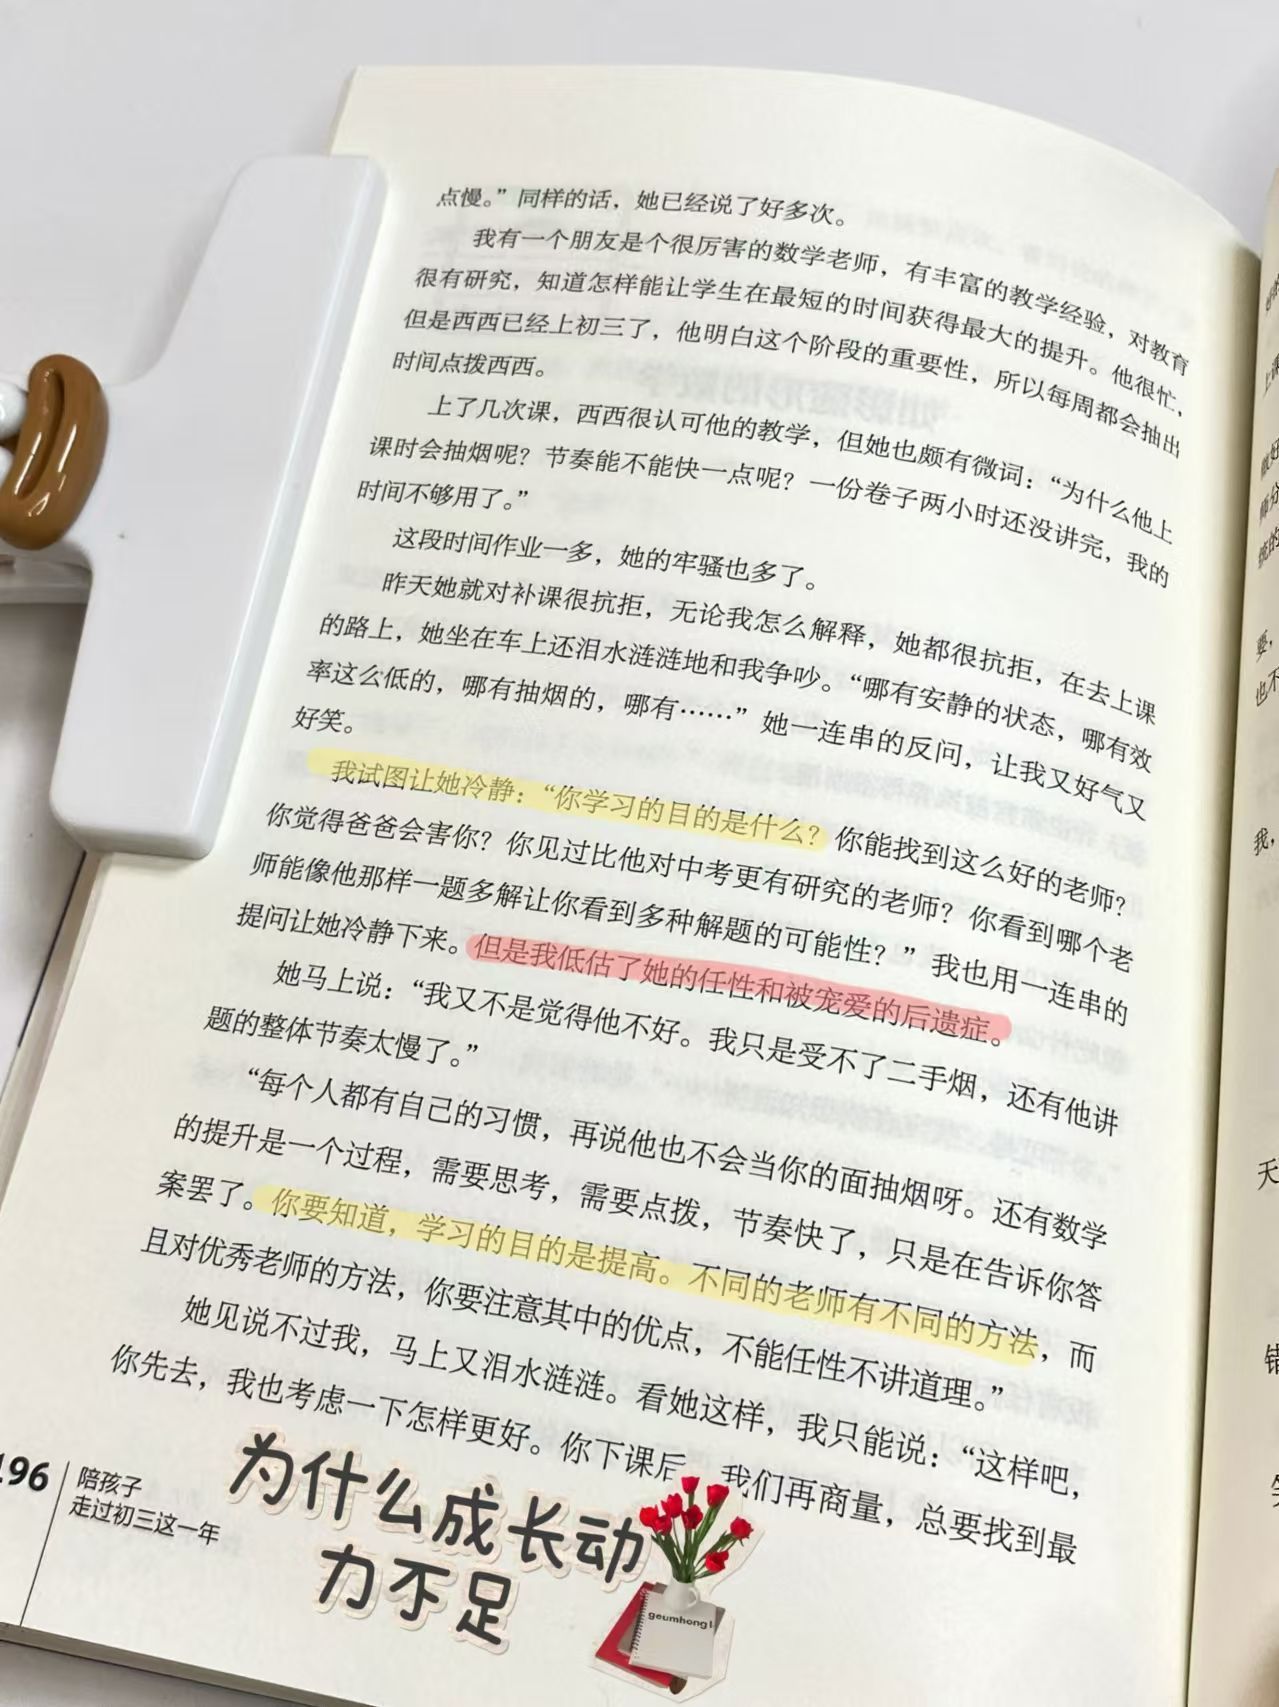 点慢。”同样的话，她已经说了好多次。
我有一个朋友是个很厉害的数学老师，有丰富的教学经验，对教育
很有研究，知道怎样能让学生在最短的时间获得最大的提升。他很忙，
但是西西已经上初三了，他明白这个阶段的重要性，所以每周都会抽出
时间点拨西西。
上了几次课，西西很认可他的教学，但她也颇有微词：“为什么他上
课时会抽烟呢？节奏能不能快一点呢？一份卷子两小时还没讲完，我的
时间不够用了。”
这段时间作业一多，她的牢骚也多了。
昨天她就对补课很抗拒，无论我怎么解释，她都很抗拒，在去上课
的路上，她坐在车上还泪水涟涟地和我争吵。“哪有安静的状态，哪有效
率这么低的，哪有抽烟的，哪有……”她一连串的反问，让我又好气又
好笑。
我试图让她冷静：“你学习的目的是什么？你能找到这么好的老师？
你觉得爸爸会害你？你见过比他对中考更有研究的老师？你看到哪个老
师能像他那样一题多解让你看到多种解题的可能性？”我也用一连串的
提问让她冷静下来。但是我低估了她的任性和被宠爱的后遗症。
她马上说：“我又不是觉得他不好。我只是受不了二手烟，还有他讲
题的整体节奏太慢了。”
“每个人都有自己的习惯，再说他也不会当你的面抽烟呀。还有数学
的提升是一个过程，需要思考，需要点拨，节奏快了，只是在告诉你答
案罢了。你要知道，学习的目的是提高。不同的老师有不同的方法，而
且对优秀老师的方法，你要注意其中的优点，不能任性不讲道理。”
她见说不过我，马上又泪水涟涟。看她这样，我只能说：“这样吧，
你先去，我也考虑一下怎样更好。你下课后 我们再商量，总要找到最
196
陪孩子
走过初三这一年
为什么成长动
力不足
geumhong